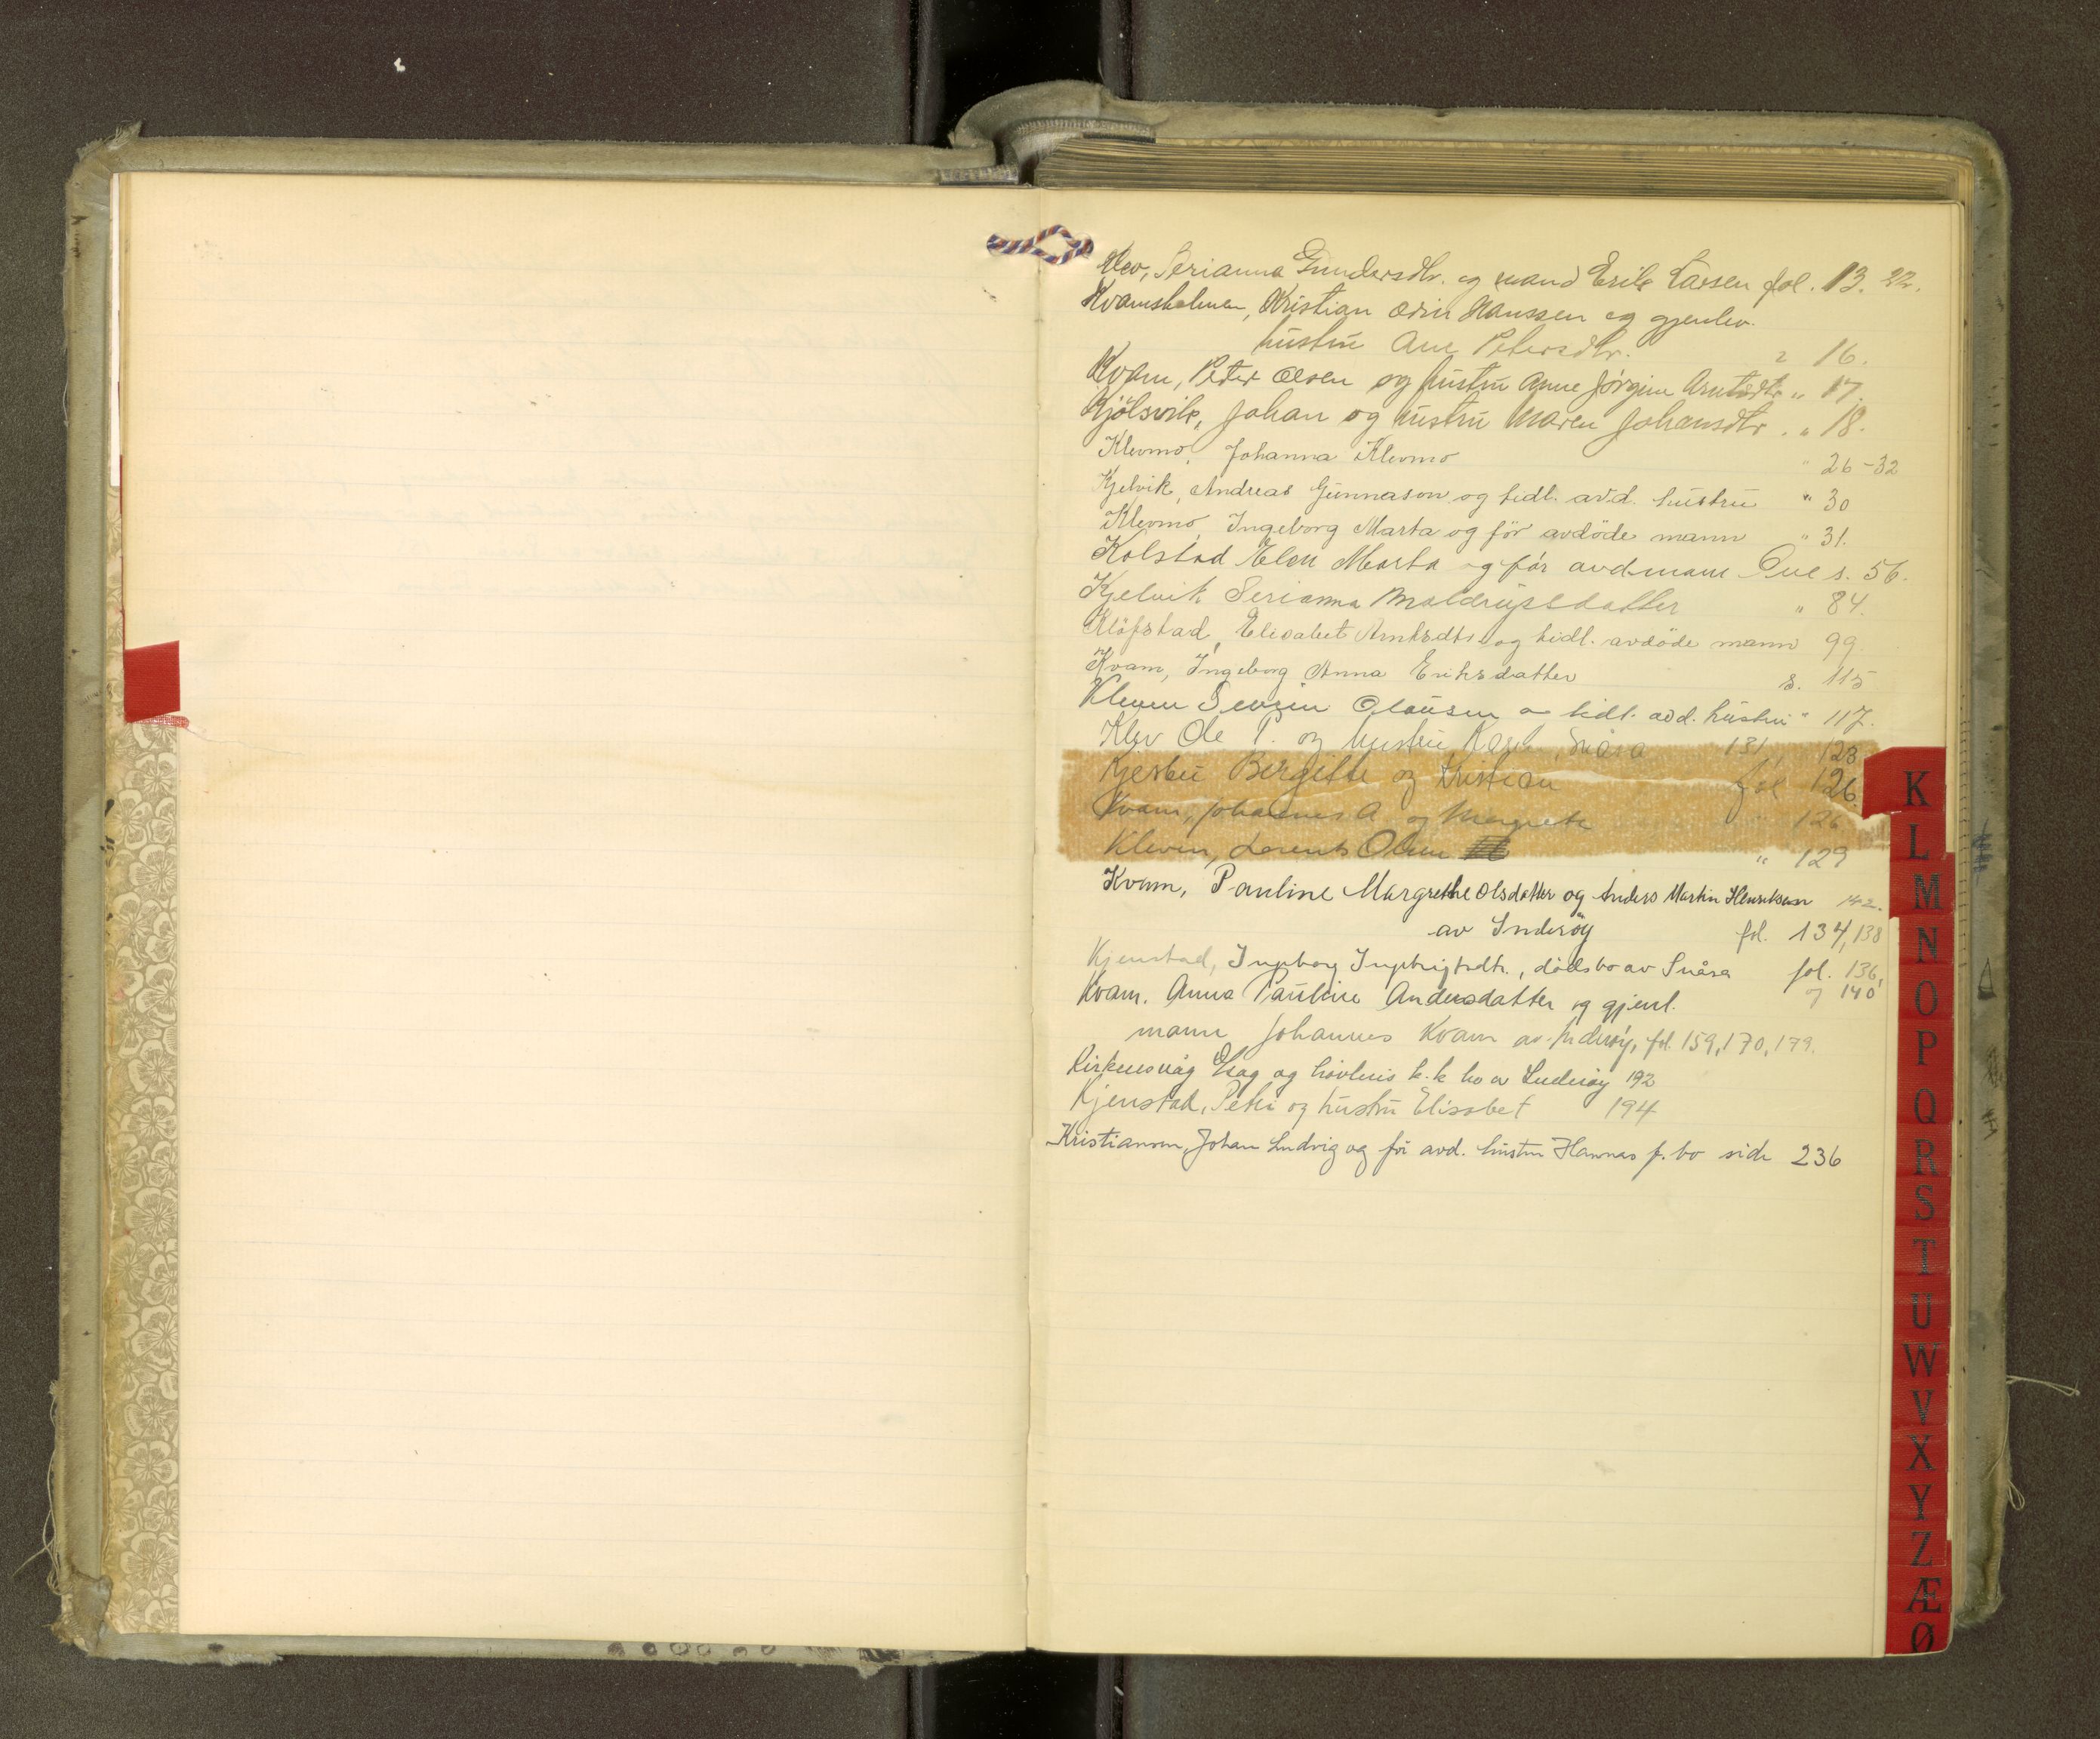 Klev, Serianna Gundersdtr. og mand Erik Larsen fol. 13. 22.
Kvamsholmen, Kristian Odin Hanssen og gjenlev.
hustru Ane Petersdtr. " 16.
Kvam, Peter Olsen og hustru Anne Jørgine Arntsdtr " 17.
Kjölsvik, Johan og hustru Maren Johansdtr. " 18.
Klevmo, Johanna Klevmo " 26-32
Kjelvik, Andreas Gunnason og tidl. avd. hustru " 30
Klevmo, Ingeborg Marta og før avdöde mann " 31.
Kolstad Elen Marta og før avd. mann s. 56.
Kjelvik Serianna Moldrupsdatter " 84.
Klöfstad, Elisabet Arntsdtr. og tidl. avdöde mann 99
Kvam, Ingeborg Anna Eriksdatter s. 115
Kleven Sevrin Olausen o tidl. avd. hustru " 117.
Klev Ole P. og hustru Karen, Snåsa 131, 123
Kjesbu Bergitte og Kristian fol 126.
Kvam, Johannes A. og Margrete " 126
Kleven, Lorents Olsen " 129
Kvam, Pauline Margrethe Olsdatter og Anders Martin Henriksen 142.
av Inderøy fol. 134, 138
Kjenstad, Ingeborg , dödsbo av Snåsa fol. 136,
og 140
Kvam. Anna Pauline Andersdatter og gjenl.
mann Johannes Kvam av Inderöy, fol. 159, 170, 179.
Kirknesvåg Sag og høvleris k.k bo av Inderöy 192
Kjenstad, Peter og hustru Elisabet 194
Kristiansen, Johan Ludvig og før avd. hustru Hannas f. bo side 236
K
L
M
N
O
P
Q
R
S
T
U
W
V
X
Y
Z
Æ
Ø